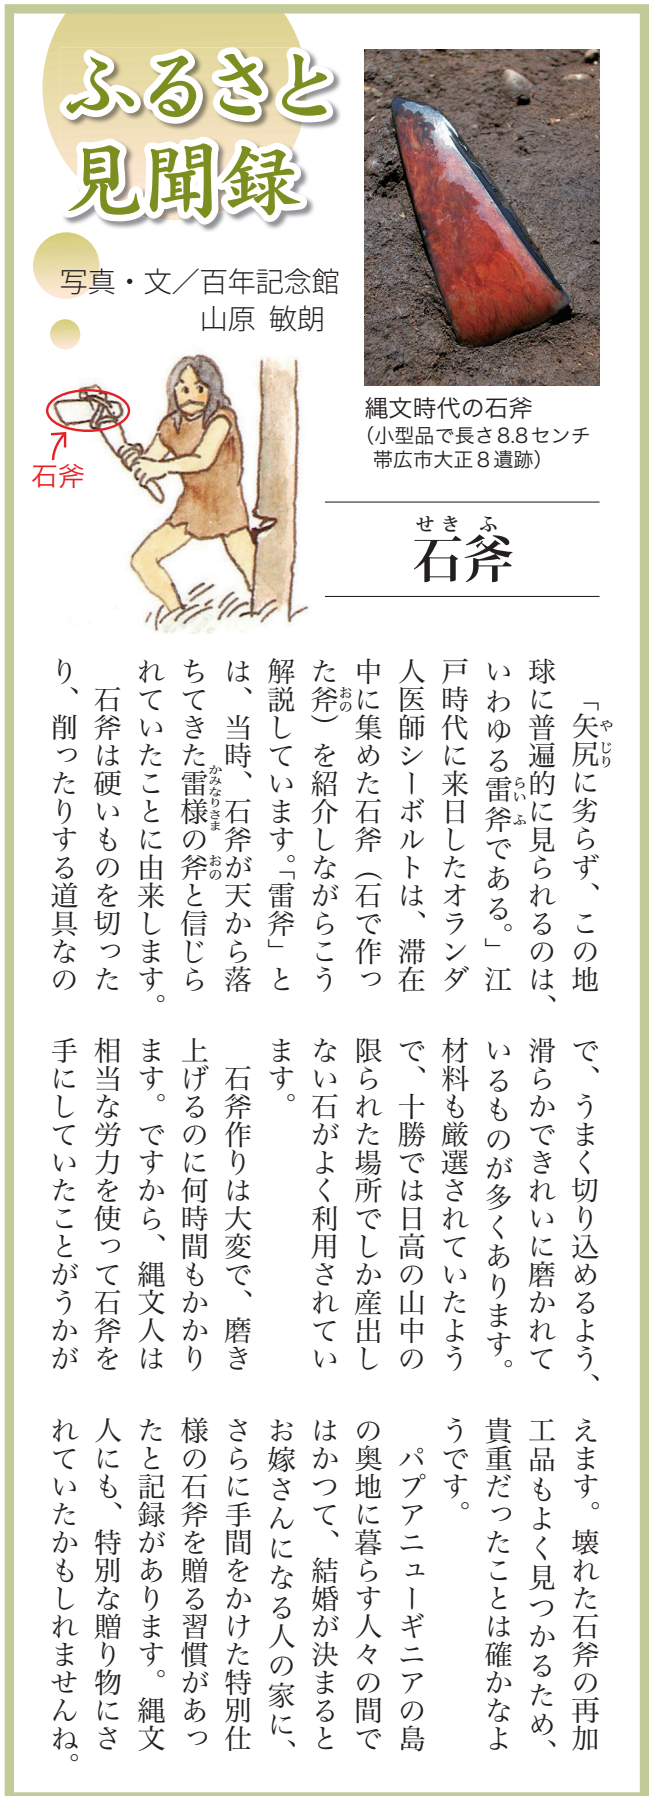 ふるさと
見聞録
写真・文／百年記念館
山原 敏朗
石斧
縄文時代の石斧
（小型品で長さ8.8センチ
帯広市大正８遺跡）
せきふ
石斧
「矢尻に劣らず、この地
やじり
球に普遍的に見られるのは、
いわゆる雷斧である。」江
らいふ
戸時代に来日したオランダ
人医師シーボルトは、滞在
中に集めた石斧（石で作っ
た斧）を紹介しながらこう
おの
解説しています。「雷斧」と
は、当時、石斧が天から落
ちてきた雷様の斧と信じら
かみなりさま おの
れていたことに由来します。
石斧は硬いものを切った
り、削ったりする道具なの
で、うまく切り込めるよう、
滑らかできれいに磨かれて
いるものが多くあります。
材料も厳選されていたよう
で、十勝では日高の山中の
限られた場所でしか産出し
ない石がよく利用されてい
ます。
石斧作りは大変で、磨き
上げるのに何時間もかかり
ます。ですから、縄文人は
相当な労力を使って石斧を
手にしていたことがうかが
えます。壊れた石斧の再加
工品もよく見つかるため、
貴重だったことは確かなよ
うです。
パプアニューギニアの島
の奥地に暮らす人々の間で
はかつて、結婚が決まると
お嫁さんになる人の家に、
さらに手間をかけた特別仕
様の石斧を贈る習慣があっ
たと記録があります。縄文
人にも、特別な贈り物にさ
れていたかもしれませんね。